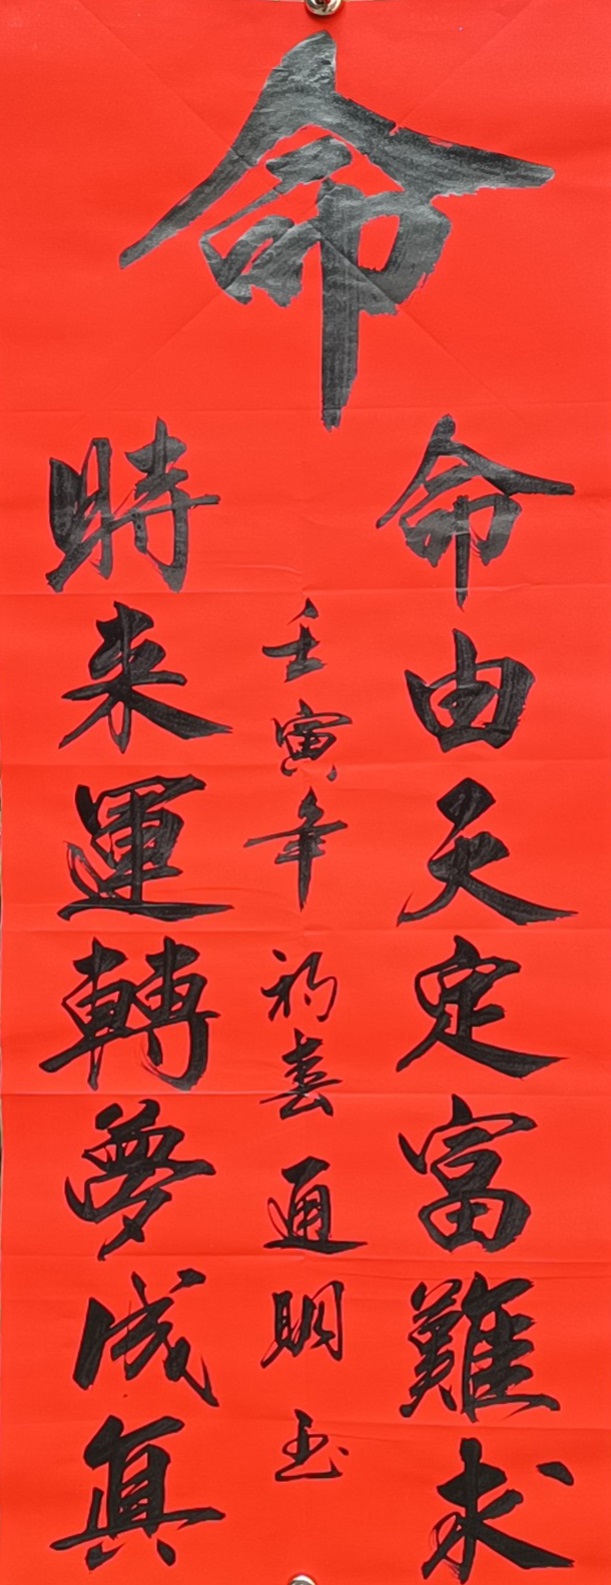 命
命由天定富難求
時来運轉夢成真
壬寅年初春通明玉